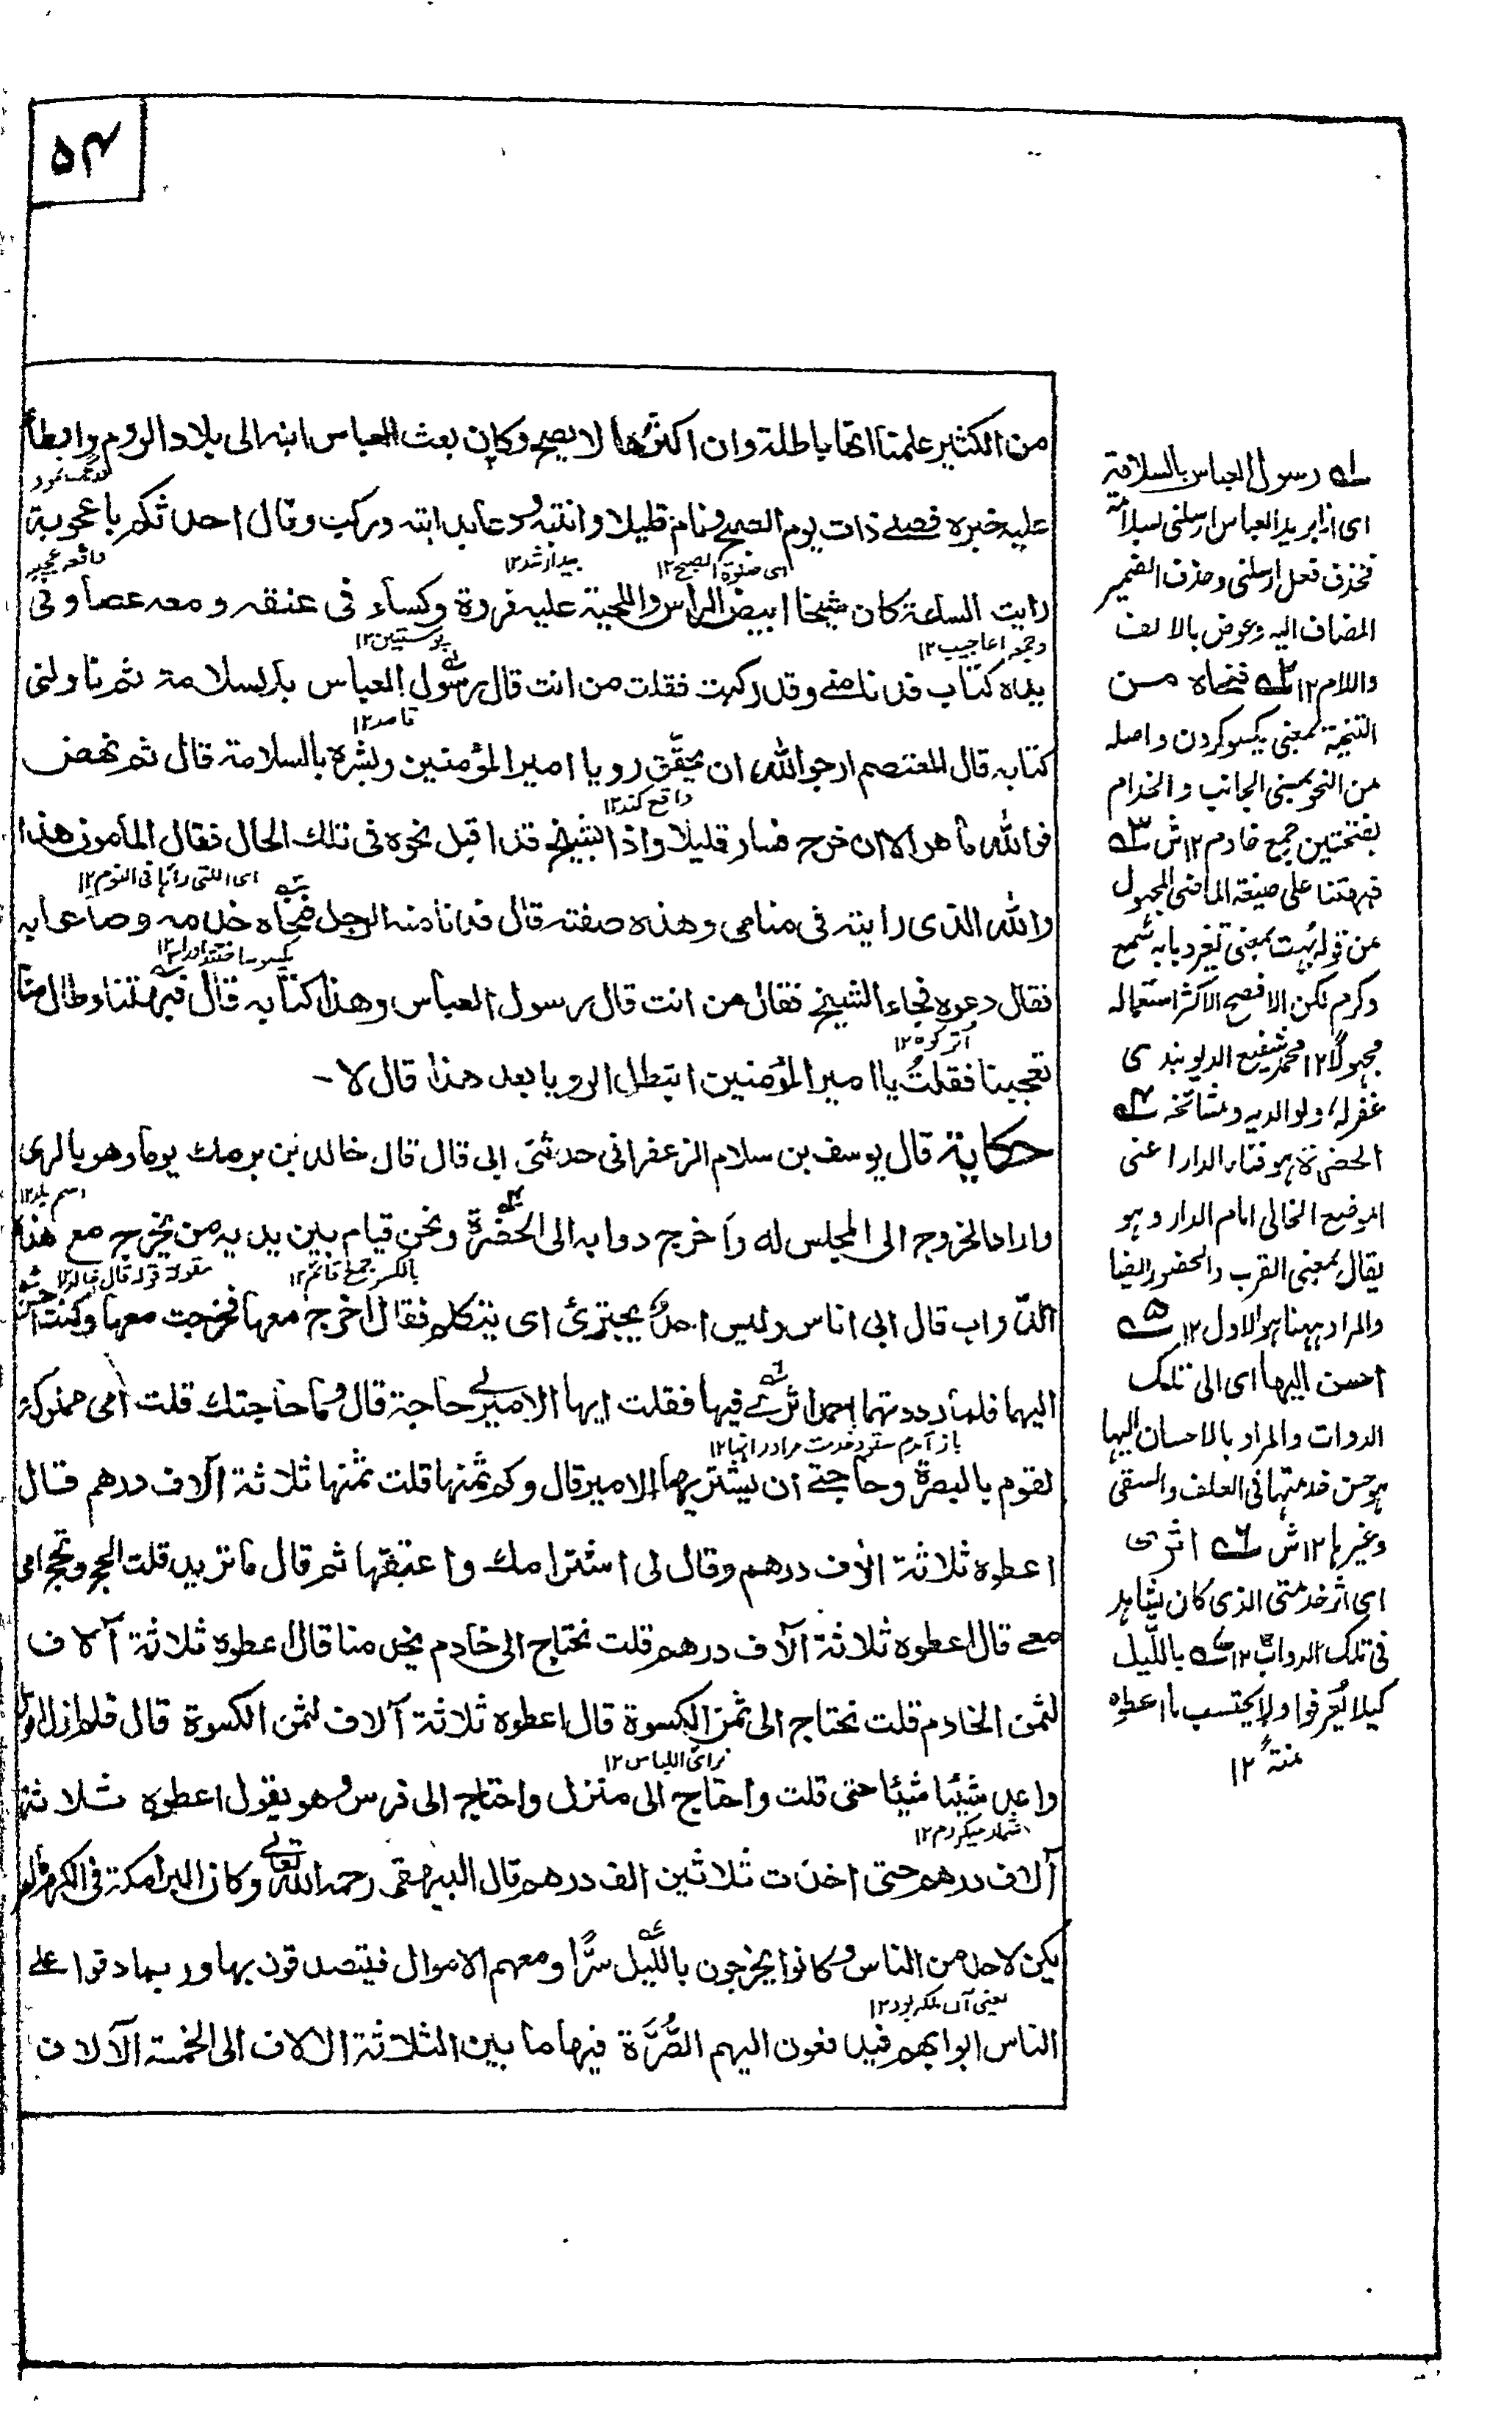 ۵۴
من الكثير علمنا انها باطلة وان اكثرها لا يصح وكان بعث العباس ابنه الى بلاد الروم وابطأ
عليه خبره فصلے ذات يوم الصبح ونام قليلا وانتبه ودعا بدابته وركب وقال احدثكم باعجوبة
اى صلوة الصبح ١٢
بيدار شد ١٢
واقعہ عجیبہ
رايت الساعة كان شيخا ابيض الراس واللحية عليه فروة وكساء فى عنقه ومعه عصا وفى
وجمعہ اعاجيب ١٢
پوستين ١٢
يده كتاب فدنا منے وقد ركبت فقلت من انت قال رسول العباس بالسلامة ثم ناولنى
قاصد ١٢
كتابه قال المعتصم ارجو الله ان يحقق رويا امير المؤمنين ويشره بالسلامة قال ثم نهض
واقع كند ١٢
فوالله ما هو الا ان خرج فسار قليلا واذا بشيخ قد اقبل نحوه فى تلك الحال فقال المامون هذا
اى التى راٰها فى النوم ١٢
والله الذى رايته فى منامى وهذه صفته قال فدنا منه الرجل فنحاه خدامه وصاحوا به
فقال دعوه فجاء الشيخ فقال من انت قال رسول العباس وهذا كتابه قال فبهتنا وطال منه
تعجبنا فقلت يا امير المؤمنين ابتطل الرويا بعد هذا قال لا -
حكاية قال يوسف بن سلام الزعفرانى حدثنى ابى قال قال خالد بن برمك يوما وهو بالرى
اسم بلد ١٢
واراد الخروج الى المجلس له واخرج دوابه الى الحضرة ونحن قيام بين يديه من يخرج مع هذه
بالكسر جمع قائم ١٢
مقولة قوله قال خالد ١٢
الدواب قال ابى اناس وليس احد يجترئ اى يتكلم فقال اخرج معها فخرجت معها وكنت احسن
اليهما فلما رددتهما احمد اثرے فيها فقلت ايها الامير لے حاجة قال وما حاجتك قلت امى مملوكة
باز آمدم ستود خدمت مرا در انہا ١٢
لقوم بالبصرة وحاجتے ان يشتريها الامير قال وكم ثمنها قلت ثمنها ثلاثة آلاف درهم قال
اعطوه ثلاثة الاف درهم وقال لى اشتر امك واعتقها ثم قال ما تريد قلت الحج وتحج امى
معے قال اعطوه ثلاثة آلاف درهم قلت نحتاج الى خادم يخدمنا قال اعطوه ثلاثة آلاف
لثمن الخادم قلت نحتاج الى ثمن الكسوة قال اعطوه ثلاثة آلاف لثمن الكسوة قال فلم ازل اقول
برائ اللباس ١٢
واعد شيئا شيئا حتى قلت واحتاج الى منزل واحتاج الى فرس وهو يقول اعطوه ثلاثة
شمار ميكردم ١٢
آلاف درهم حتى اخذت ثلاثين الف درهم قال البيهقى رحمه الله تعالے وكان البرامكة فى الكرم ما لم
يكن لاحد من الناس وكانوا يخرجون بالليل سرًّا ومعهم الاموال فيتصدقون بها وربما دقوا علے
الناس ابوابهم فيدفعون اليهم الصُّرَّة فيها ما بين الثلاثة الالاف الى الخمسة الآلاف
١ه رسول العباس بالسلامة
اى انا بريد العباس ارسلنى بسلامته
فحذف فعل ارسلنى وحذف الضمير
المضاف اليه وعوض بالالف
واللام ١٢ ٢ه فنحاه من
التنحية بمعنى يكسو كردن واصله
من النحو بمعنى الجانب والخدام
بفتحتين جمع خادم ١٢ش ٣ه
فبهتنا على صيغة الماضى المجهول
من قوله بُهت بمعنى تغير وبابه سمع
وكرم لكن الافصح الاكثر استعماله
مجهولًا ١٢ محمد شفيع الديوبندى
غفرله ولوالديه ومشائخه ٤ه
الحضرة ہو فناء الدار اعنى
الموضع الخالى امام الدار وہو
يقال بمعنى القرب والحضور ايضا
والمراد ہہنا ہو الاول ١٢ ٥ه
احسن اليها اى الى تلك
الدواب والمراد بالاحسان اليہا
ہو حسن خدمتها فى العلف والسقى
وغيرہا ١٢ش ٦ه اثرى
اى اثر خدمتى الذى كان يشاہد
فى تلك الدواب ١٢ ٧ه بالليل
كيلا يُعرفوا ولا يحتسب ما اعطوه
منة ١٢